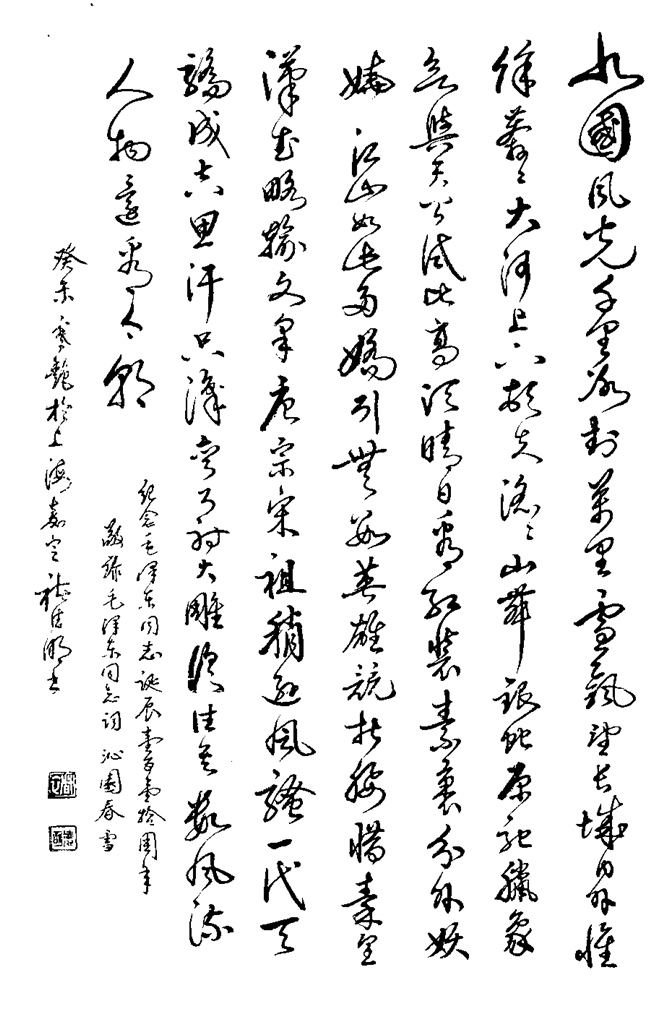 北國風光千里冰封萬里雪飄望長城內外惟
餘莽〻大河上下頓失滔〻山舞銀蛇原馳臘象
欲與天公試比高須晴日看紅裝素裹分外妖
嬈江山如此多嬌引無數英雄競折腰惜秦皇
漢武略輸文采唐宗宋祖稍遜風騷一代天
驕成吉思汗只識彎弓射大雕俱往矣數風流
人物還看今朝
紀念毛澤東同志誕辰壹百壹拾周年
敬錄毛澤東同志詞 沁園春 雪
癸未於上海嘉定書